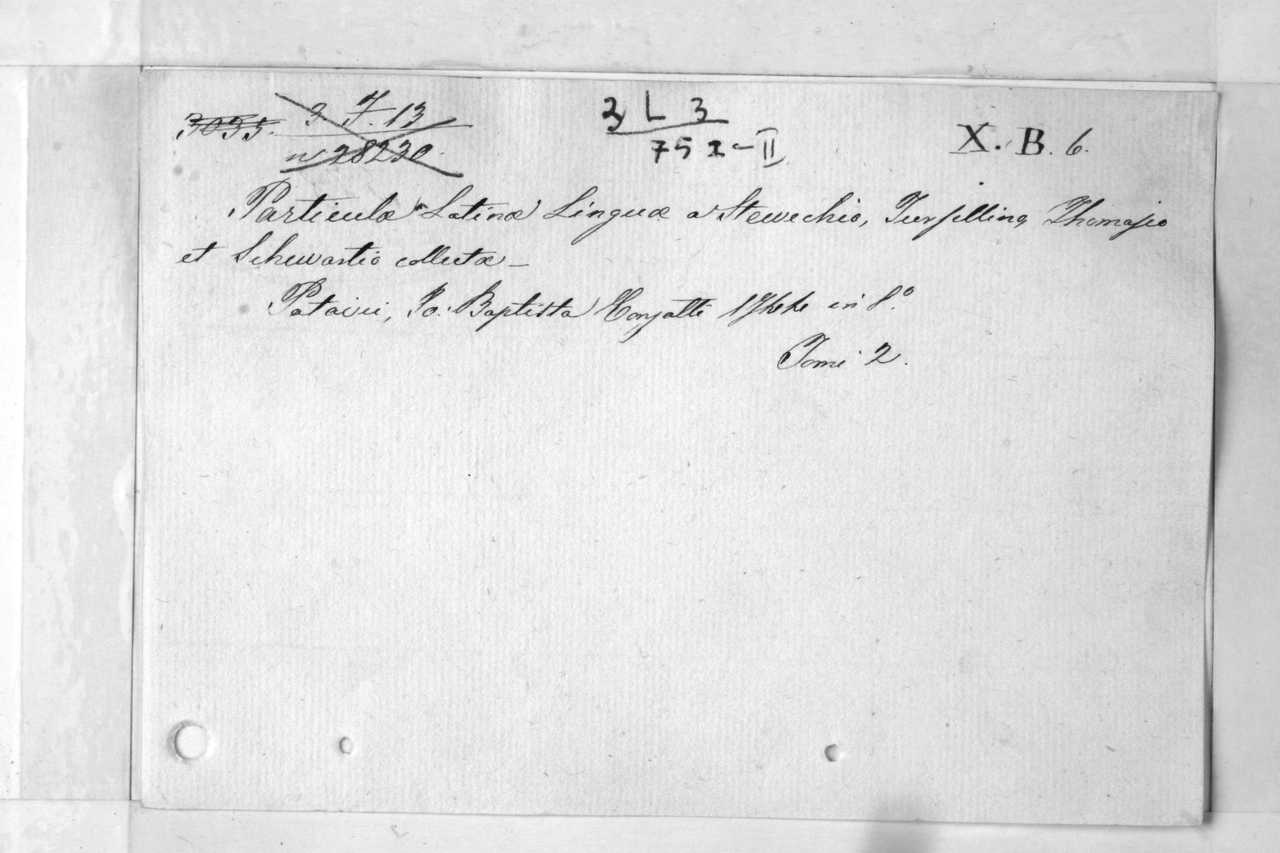 3055. 3 7.13 2 L 3
n° 28230. 75 I-II X. B. 6.
Particulæ Latinæ Linguæ a Stewechio, Tursellino, Thomasio
et Schwartio collectæ _
Patavii, Jo: Baptista Conzatti in 8.°
Tomi 2.